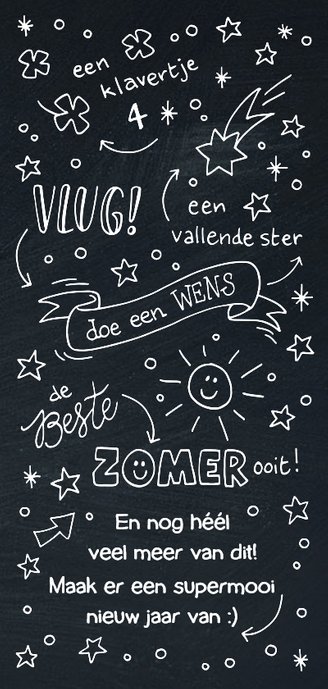 een
klavertje
4
VLUG!
een
vallende ster
doe een WENS
de
Beste
ZOMER ooit!
En nog héél
veel meer van dit!
Maak er een supermooi
nieuw jaar van :)